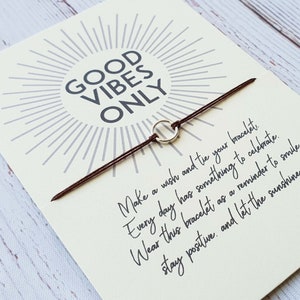 GOOD
VIBES
ONLY
Make a wish and tie your bracelet.
Every day has something to celebrate.
Wear this bracelet as a reminder to smile
stay positive and let the sunshine